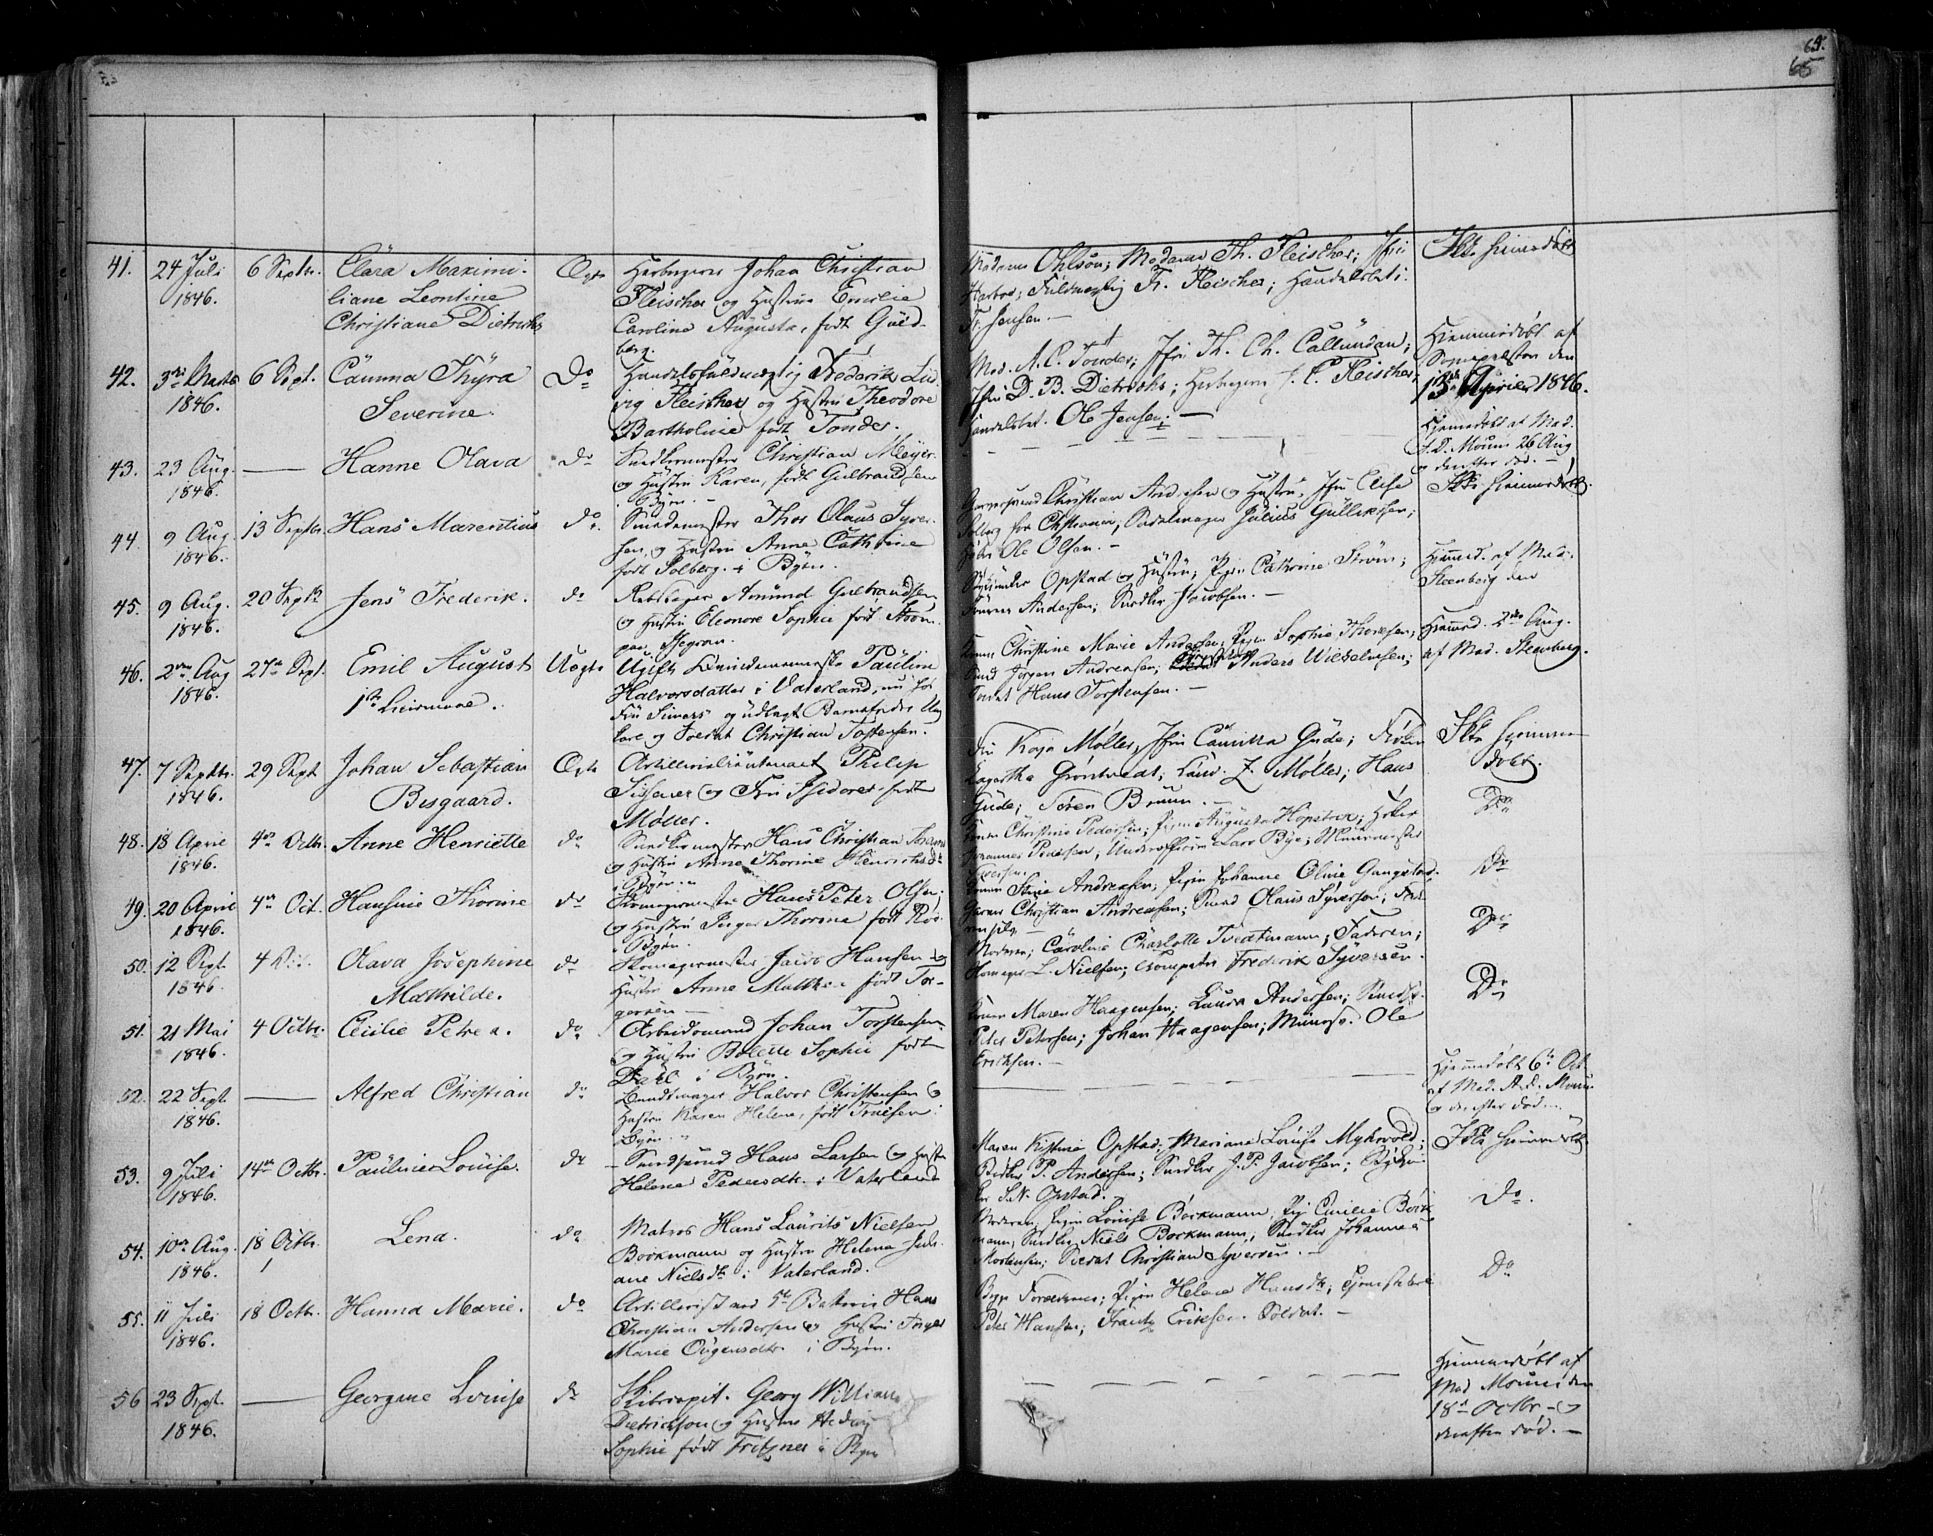 64.
65
41.
24 Juli
1846.
6 Septr.
Clara Maximi-
liane Leontine
Christiane Dietrichs
Ægte
Johan Christian
Fleischer og Hustru Emilie
Caroline Augusta, født Guld-
berg.
Madame Ohlson; Madame Th. Fleischer; Jfru
Fuldmægtig Fr. Fleischer; Handelsbetj:
Fr. Jensen.
Ikke hjemmedøbt
42.
3die Marts
1846.
6 Sept.
Camma Thyra
Severine.
Do
Handelsfuldmægtig Frederik Lud-
vig Fleischer og Hustru Theodore
Bartholine født Tønder.
Mad. A. C. Tønder; Jfru Th. Ch. Callundan;
Jfru D. B. Dietrichs; J. C. Fleischer;
Handelsbet. Ole Jensen.
Hjemmedøbt af
den
13de April 1846.
43.
23 Aug.
1846.
Hanne Olava
do
Snedkermester Christian Meyer
og Hustru Karen, født Gulbrandsen
i Byen.
Hjemmedøbt af Mad.
Moum 26 Aug
og derefter død.
44.
9 Aug.
1846.
13 Septr.
Hans Marentius
do
Smedemester Thor Olaus Syver-
sen, og Hustru Anne Cathrine
født Solberg. i Byen.
Christian Andersen og Hustru; Jfru Elise
Solberg fra Christiania; Sadelmager Julius Gulliksen;
Ole Olsen.
Ikke hjemmedøbt.
45.
9 Aug.
1846.
20 Septr
Jens Frederik.
do
Rebslager Amund Gulbrandsen
og Hustru Eleonore Sophie født Strøm
Opstad og Hustru; Pigen Cathrine Strøm;
Andersen; Snedker Jacobsen.
Hjemmed. af Mad.
Steenberg den
46.
2den Aug
1846.
27de Sept.
Emil August
1ste Leiermaal.
Uægte
Ugifte Qvindemenneske Pauline
Halvorsdatter i Vaterland, nu hos
Fru Sivers og udlagt Barnefader Ung-
karl og Soldat Christian Tostensen.
Konen Christine Marie Andersen; Pigen Sophie Thoresen;
Smed Jørgen Andreasen; Anders Wilhelmsen;
Soldat Hans Torstensen.
Hjemmed. 2den Aug.
af Mad. Steenberg.
47.
7 Septbr.
1846.
29 Sept
Johan Sebastian
Bisgaard.
Ægte
Artillerielieutenant Philip
Sissener og Fru Isidora født
Møller.
Fru Kaja Møller, Jfru Camilla Gude; Frøken
Lagertha Grøntvedt; Cand. Z. Møller; Hans
Gude; Søren Bruun.
Ikke hjemme-
døbt.
48.
18 April
1846.
4de Octb.
Anne Henriette
do
Snedkermester Hans Christian
og Hustru Anne Thorine Henrichsdr.
i Byen.
Konen Christine Pedersen; Pigen Augusta Hopstock;
Johannes Pedersen; Lars Bye; Muurmester
Syversen.
Do
49.
20 April
1846.
4de Oct.
Hansine Thorine
do
Skomagermester Hans Peter Olsen,
og Hustru Inger Thorine født
i Byen.
Konen Stine Andreasen; Pigen Johanne Olivie Gangstad;
Garver Christian Andreasen; Smed Olaus Syversen;
Do
50.
12 Sept.
1846.
4 Oct.
Olava Josephine
Mathilde.
do
Skomagermester Jacob Hansen og
Hustru Anne Mathea født Tor-
gersen
Moderen; Caroline Charlotte Tvedtmann; Faderen;
Skomager L. Nielsen; Frederik Syversen.
Do
51.
21 Mai
1846.
4 Octbr.
Cecilie Petrea.
do
Arbeidsmand Johan Torstensen
og Hustru Bolette Sophie født
Dahl i Byen.
Konen Maren Haagensen; Laura Andersen; Smeds.
Peter Petersen; Johan Haagensen; Muursv. Ole
Eriksen.
Do
52.
22 Sept
1846.
Alfred Christian
do
Bundtmager Halvor Christensen og
Hustru Karen Helene, født Truelsen i
Byen.
Hjemmedøbt 6te Oct
af Mad. And. Moum
og derefter død.
53.
9 Juli
1846.
14de Octbr.
Pauline Louise.
do
Smedsvend Hans Larsen og Hustru
Helene Pedersdtr. i Vaterland
Maren Kistine Opstad; Mariane Louise Myhrvold;
P. Andersen; Snedker J. P. Jacobsen;
Opstad.
Ikke hjemmedøbt
54.
10de Aug.
1846.
18 Octbr.
Lena.
do
Matros Hans Laurits Nielsen
Bockmann og Hustru Helena Juli-
ane Nielsdtr i Vaterland.
Moderen, Pigen Louise Bockmann, Pigen Emilie Bock-
mann; Snedker Niels Bockmann; Snedker Johannes
Mortensen; Soldat Christian Syversen.
Do.
55.
11 Juli
1846.
18 Octbr.
Hanna Marie.
do
Artillerist ved 5te Batterie Hans
Christian Andersen og Hustru Inger
Marie i Byen.
Begge Forældrene; Pigen Helene Hansdtr;
Peter Hansen; Frantz Eriksen Soldat.
Do
56
23 Sept.
1846.
Georgine Louise
do
Skibscapit. Georg William
Dietrichson og Hustru Hedvig
Sophie født Fritzner i Byen
Hjemmedøbt af
Mad Moum den
18de Octbr. og
derefter død.